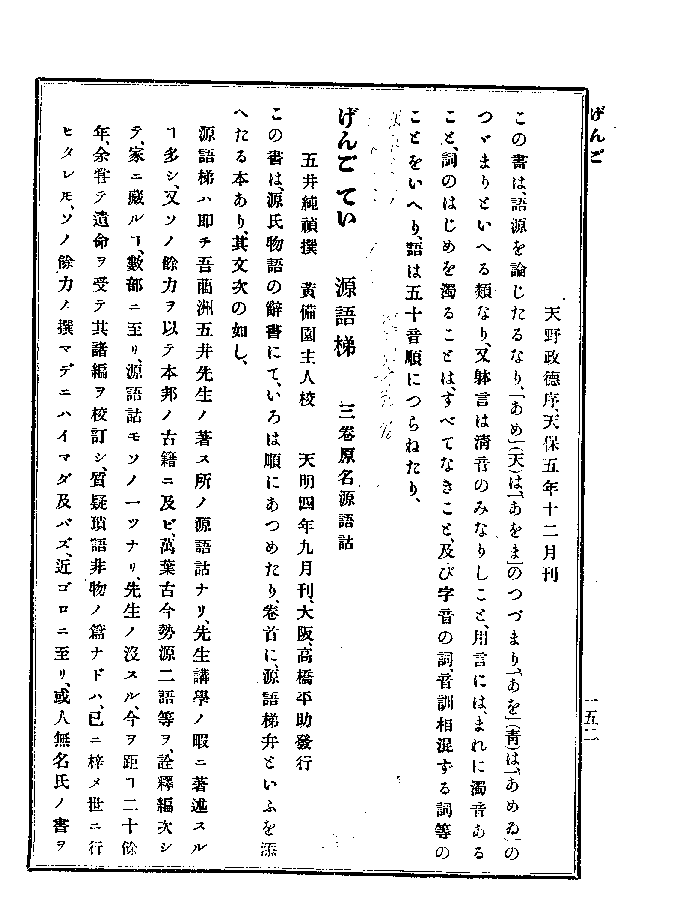 げんご
一五二
天野政德序、天保五年十二月刊
この書は、語源を論じたるなり、「あめ」(天)は、「あをま」のつづまり、「あを」(靑)は、「あめゐ」の
つゞまりといへる類なり、又躰言は淸音のみなりしこと、用言には、まれに濁音ある
こと、詞のはじめを濁ることは、すべてなきこと、及び字音の詞、音訓相混ずる詞等の
ことをいへり、語は五十音順につらねたり、
げんご てい 源語梯 三卷原名源語詁
五井純禎撰 黃備園主人校 天明四年九月刊、大阪、高橋平助發行
この書は、源氏物語の辭書にて、いろは順にあつめたり、卷首に、源語梯弁といふを添
へたる本あり、其文次の如し、
源語梯ハ卽チ吾蘭洲五井先生ノ著ス所ノ源語詁ナリ、先生講學ノ暇ニ著述スル
ヿ多シ、又ソノ餘力ヲ以テ本邦ノ古籍ニ及ビ、萬葉古今勢源二語等ヲ、詮釋編次シ
テ、家ニ藏ルヿ、數部ニ至リ、源語詁モソノ一ツナリ、先生ノ沒スル、今ヲ距ヿ二十餘
年、余嘗テ遺命ヲ受テ其諸編ヲ校訂シ、質疑瑣語非物ノ篇ナドハ、已ニ梓メ世ニ行
ヒタレ𪜈、ソノ餘力ノ撰マデニハイマダ及バズ、近ゴロニ至リ、或人無名氏ノ書ヲ